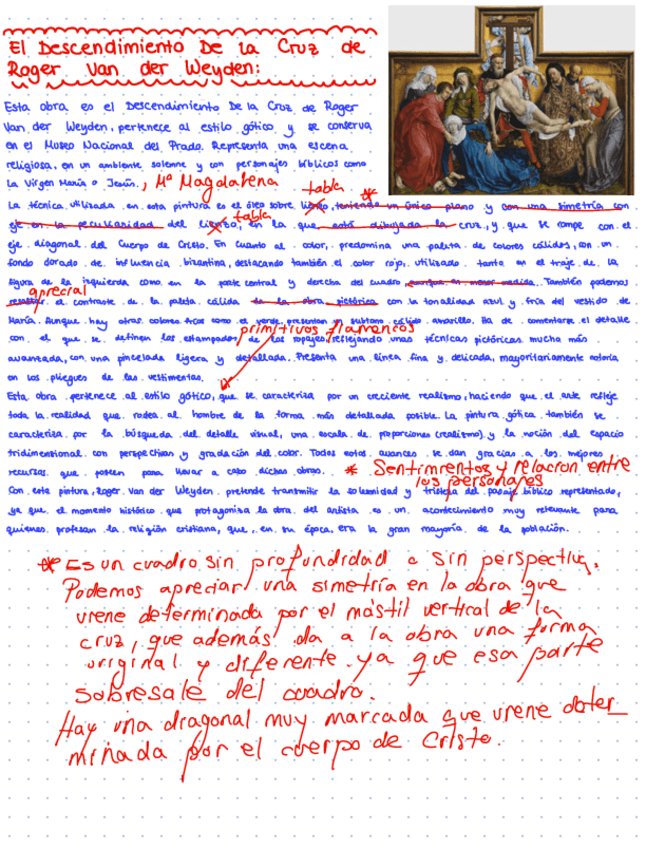 El Descendimiento De La Cruz de
Roger Van der Weyden:
Esta obra es el Descendimiento De la Cruz de Roger
Van der Weyden, pertenece al estilo gótico y se conserva
en el Museo Nacional del Prado. Representa una escena
religiosa, en un ambiente solemne y con personajes bíblicos como
La Virgen María o Jesús., Mª Magdalena
tabla *
La técnica utilizada en esta pintura es el óleo sobre lienzo, teniendo un único plano y con una simetría con
tabla
eje en la peculiaridad del lienzo, en la que está dibujada la cruz, y que se rompe con el
eje diagonal del Cuerpo de Cristo. En cuanto al color, predomina una paleta de colores cálidos, con un
fondo dorado de influencia bizantina, destacando también el color rojo, utilizado tanto en el traje de la
figura de la izquierda como en la parte central y derecha del cuadro en menor medida. También podemos
apreciar
el contraste de la paleta cálida de la obra pictórica con la tonalidad azul y fría del vestido de
María. Aunque hay otros colores fríos como el verde, presentan un subtono cálido amarillo. Ha de comentarse el detalle
primitivos flamencos
con el que se definen los estampados de los ropajes, reflejando unas técnicas pictóricas mucho más
avanzada, con una pincelada ligera y detallada. Presenta una línea fina y delicada, mayoritariamente notoria
en los pliegues de las vestimentas.
Esta obra pertenece al estilo gótico, que se caracteriza por un creciente realismo, haciendo que el arte refleje
toda la realidad que rodea al hombre de la forma más detallada posible. La pintura gótica también se
caracteriza por la búsqueda del detalle visual, una escala de proporciones (realismo) y la noción del espacio
tridimensional con perspectivas y gradación del color. Todos estos avances se dan gracias a los mejores
recursos que poseen para llevar a cabo dichas obras. * Sentimientos y relación entre
los personajes
Con esta pintura, Roger Van der Weyden pretende transmitir la solemnidad y tristeza del pasaje bíblico representado,
ya que el momento histórico que protagoniza la obra del artista es un acontecimiento muy relevante para
quienes profesan la religión cristiana, que, en su época, era la gran mayoría de la población.
* Es un cuadro sin profundidad o sin perspectiva.
Podemos apreciar una simetría en la obra que
viene determinada por el mástil vertical de la
cruz, que además da a la obra una forma
original y diferente ya que esa parte
sobresale del cuadro.
Hay una diagonal muy marcada que viene deter_
minada por el cuerpo de Cristo.